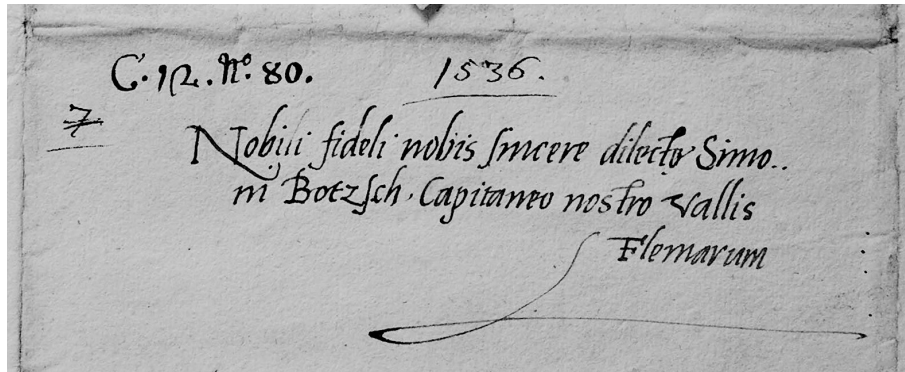 C. 12. Nº. 80.
1536.
7
Nobili fideli nobis sincere dilecto Simo..
ni Botzsch. Capitaneo nostro Vallis
Flemarum